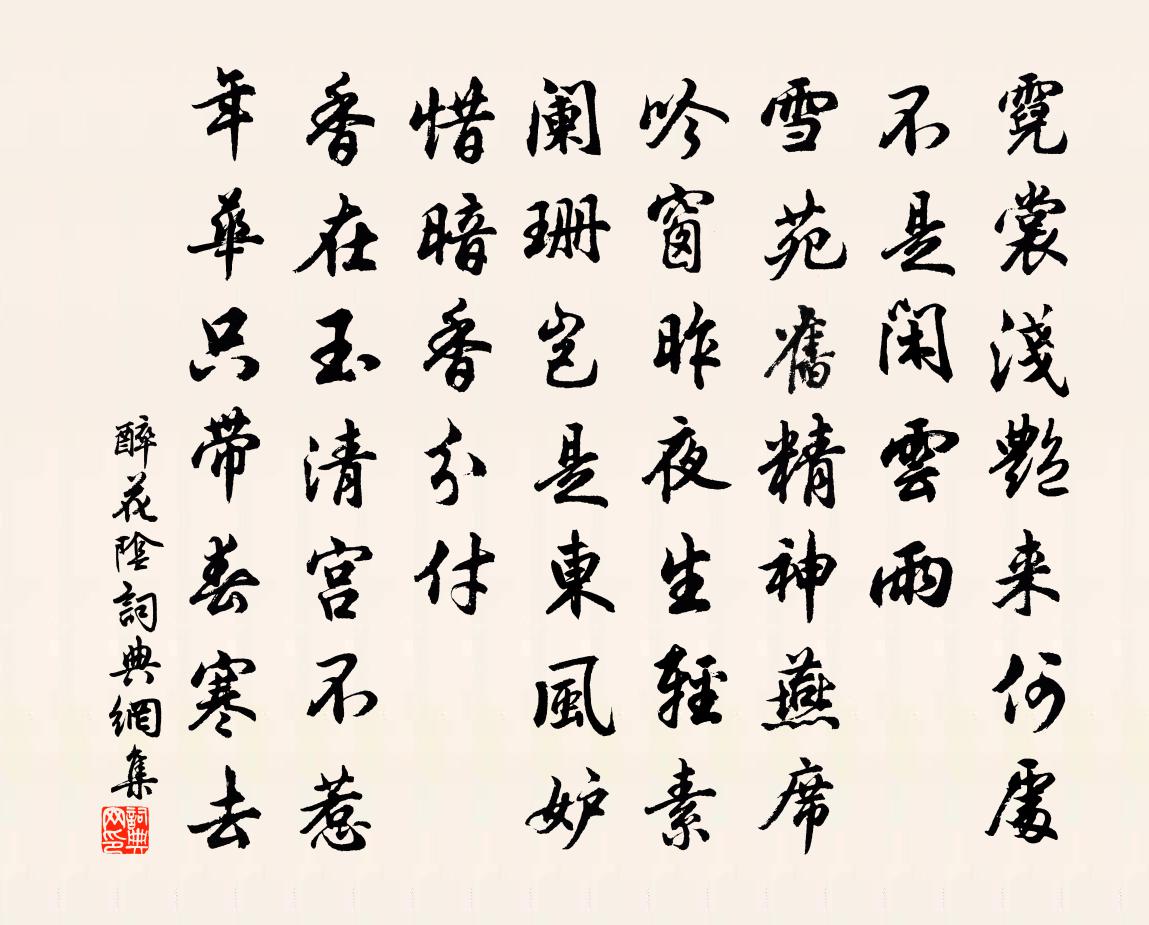 霓裳淺艷来何處
不是閑雲雨
雪苑舊精神燕席
吟窗昨夜生輕素
阑珊岂是東風妒
惜暗香分付
香在玉清宫不惹
年華只帶春寒去
醉花陰詞典網集
詞典网印